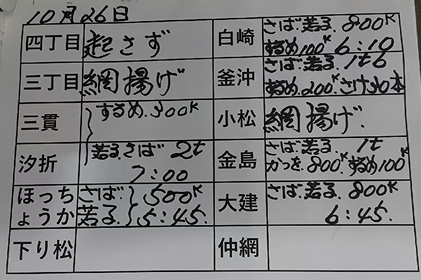 10月26日
四丁目 起さず
三丁目 網揚げ
三貫 するめ.300K
汐折 若子.さば 2t
7:00
ほっちょうか さば.若子 500K
5:45.
下り松
白崎 さば.若子.800K
するめ100K 6:10
釜沖 さば.若子.1t6
するめ.200K さけ30本
小松 網揚げ.
金島 さば.若子.1t
かつを.800K するめ100K
大建 さば.若子.800K
6:45.
仲網